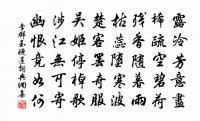 露冷芳意盡
稀疏空碧荷
殘香隨暮雨
枯蕊墮寒波
楚客罷奇服
吳姬停棹歌
涉江無可寄
幽恨竟如何
李群玉晚蓮詞典網集